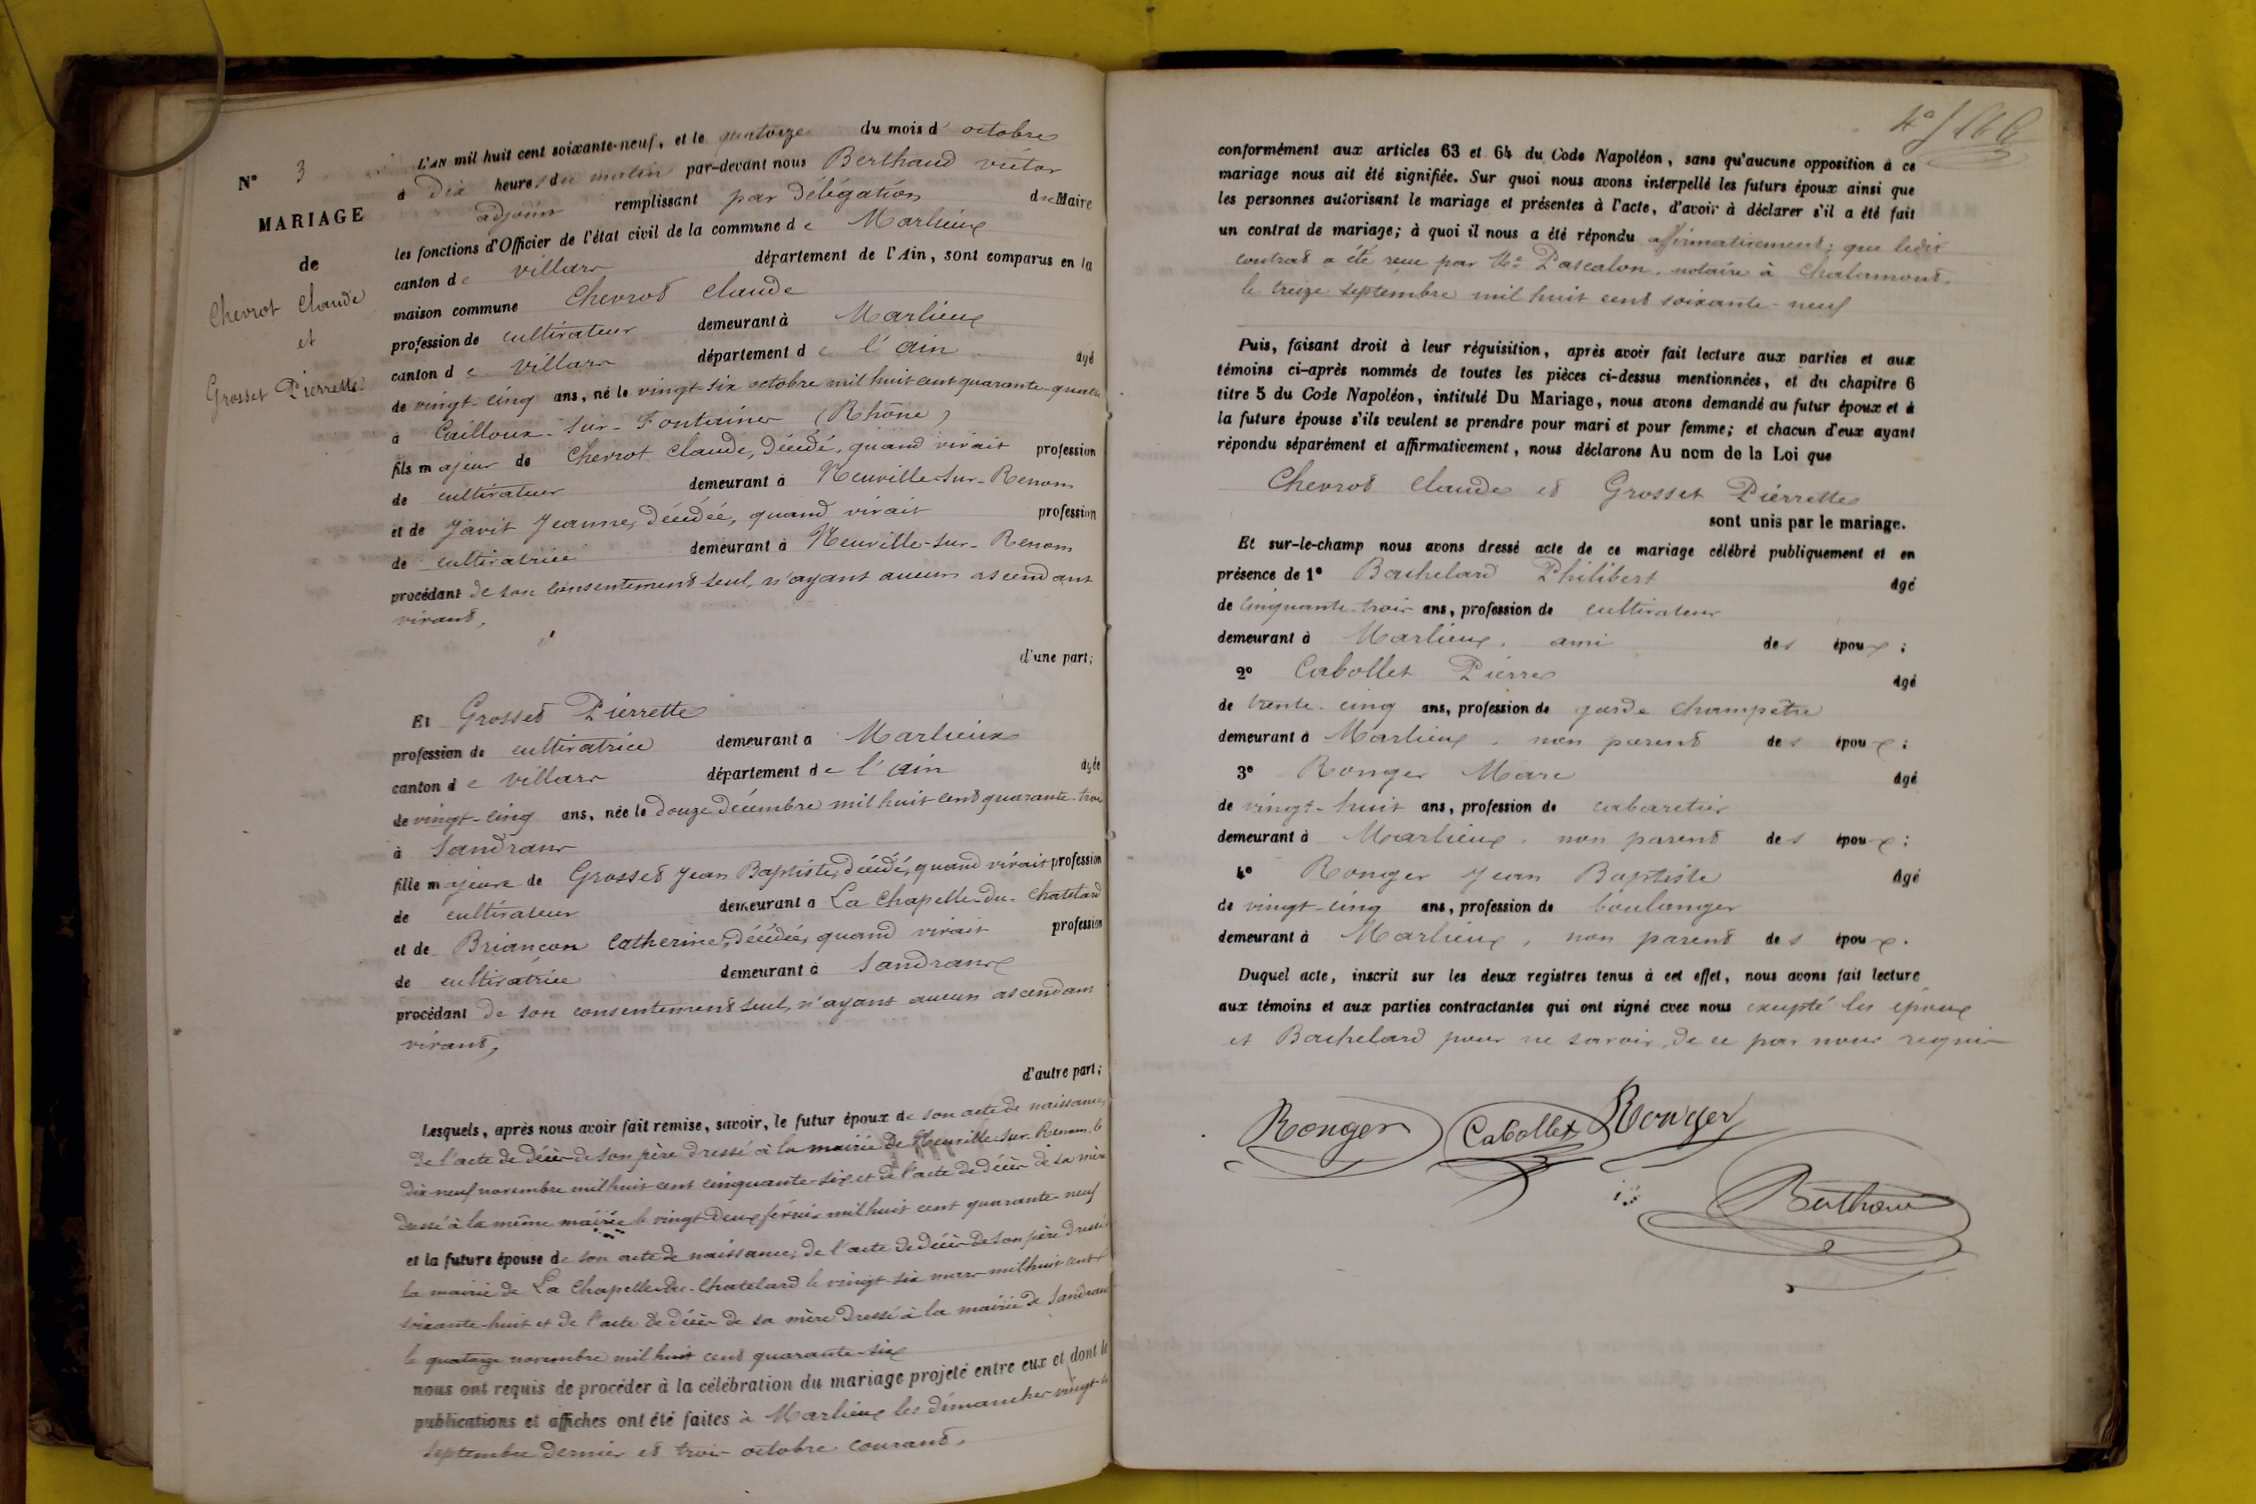 N° 3
MARIAGE
de
Chevrot Claude
et
Grosset Pierrette
L'AN mil huit cent soixante-neuf, et le quatorze du mois d'octobre
à Dix heures du matin par-devant nous Berthaud victor
adjoint remplissant par délégation du Maire
les fonctions d'Officier de l'état civil de la commune de Marlieux
canton de villars département de l'Ain, sont comparus en la
maison commune Chevrot Claude
profession de cultivateur demeurant à Marlieux
canton de villars département de l'ain âgé
de vingt-cinq ans, né le vingt-six octobre mil huit cent quarante-quatre
à Cailloux-sur-Fontaines (Rhône)
fils majeur de Chevrot Claude, Décédé, quand vivait profession
de cultivateur demeurant à Neuville-sur-Renom
et de Javit Jeanne, décédée, quand vivait profession
de cultivatrice demeurant à Neuville-sur-Renom
procédant de son consentement seul, n'ayant aucun ascendant
vivant,
d'une part;
Et Grosset Pierrette
profession de cultivatrice demeurant à Marlieux
canton de villars département de l'ain âgée
de vingt-cinq ans, née le douze décembre mil huit cent quarante-trois
à Sandrans
fille majeure de Grosset Jean Baptiste, décédé, quand vivait profession
de cultivateur demeurant à La Chapelle-du-Chatelard
et de Briançon Catherine, décédée, quand vivait profession
de cultivatrice demeurant à Sandrans
procédant de son consentement seul, n'ayant aucun ascendant
vivant,
d'autre part;
Lesquels, après nous avoir fait remise, savoir, le futur époux de son acte de naissance,
de l'acte de décès de son père dressé à la mairie de Neuville-sur-Renom le
dix-neuf novembre mil huit cent cinquante-six et de l'acte de décès de sa mère
dressé à la même mairie le vingt deux février mil huit cent quarante-neuf
et la future épouse de son acte de naissance, de l'acte de décès de son père dressé à
la mairie de La Chapelle-du-Chatelard le vingt-six mars mil huit cent
soixante-huit et de l'acte de décès de sa mère dressé à la mairie de Sandrans
le quatorze novembre mil huit cent quarante-six
nous ont requis de procéder à la célébration du mariage projeté entre eux et dont les
publications et affiches ont été faites à Marlieux les dimanches vingt-six
septembre dernier et trois octobre courant.
conformément aux articles 63 et 64 du Code Napoléon, sans qu'aucune opposition à ce
mariage nous ait été signifiée. Sur quoi nous avons interpellé les futurs époux ainsi que
les personnes autorisant le mariage et présentes à l'acte, d'avoir à déclarer s'il a été fait
un contrat de mariage; à quoi il nous a été répondu affirmativement; que ledit
contrat a été reçu par Me Pascalon, notaire à Chalamont,
le treize septembre mil huit cent soixante-neuf
Puis, faisant droit à leur réquisition, après avoir fait lecture aux parties et aux
témoins ci-après nommés de toutes les pièces ci-dessus mentionnées, et du chapitre 6
titre 5 du Code Napoléon, intitulé Du Mariage, nous avons demandé au futur époux et à
la future épouse s'ils veulent se prendre pour mari et pour femme; et chacun d'eux ayant
répondu séparément et affirmativement, nous déclarons Au nom de la Loi que
Chevrot Claude et Grosset Pierrette
sont unis par le mariage.
Et sur-le-champ nous avons dressé acte de ce mariage célébré publiquement et en
présence de 1° Bachelard Philibert âgé
de cinquante-trois ans, profession de cultivateur
demeurant à Marlieux, ami des époux;
2° Cabollet Pierre âgé
de trente-cinq ans, profession de garde champêtre
demeurant à Marlieux, non parent des époux;
3° Ronger Marc âgé
de vingt-huit ans, profession de cabaretier
demeurant à Marlieux, non parent des époux;
4° Ronger Jean Baptiste âgé
de vingt-cinq ans, profession de boulanger
demeurant à Marlieux, non parent des époux.
Duquel acte, inscrit sur les deux registres tenus à cet effet, nous avons fait lecture
aux témoins et aux parties contractantes qui ont signé avec nous excepté les époux
et Bachelard pour ne savoir, de ce par nous requis
Ronger Cabollet Ronger
Berthaud